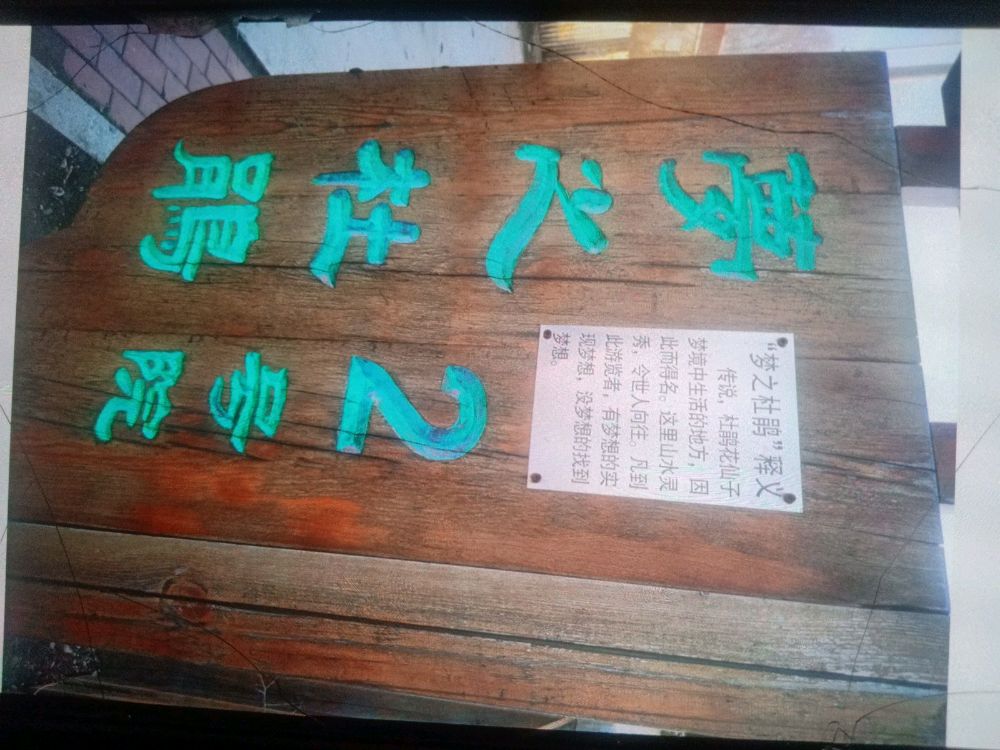 夢之杜鵑
“梦之杜鹃”释义
传说，杜鹃花仙子
梦境中生活的地方，因
此而得名。这里山水灵
秀，令世人向往。凡到
此游览者，有梦想的实
现梦想，没梦想的找到
梦想。
2号院